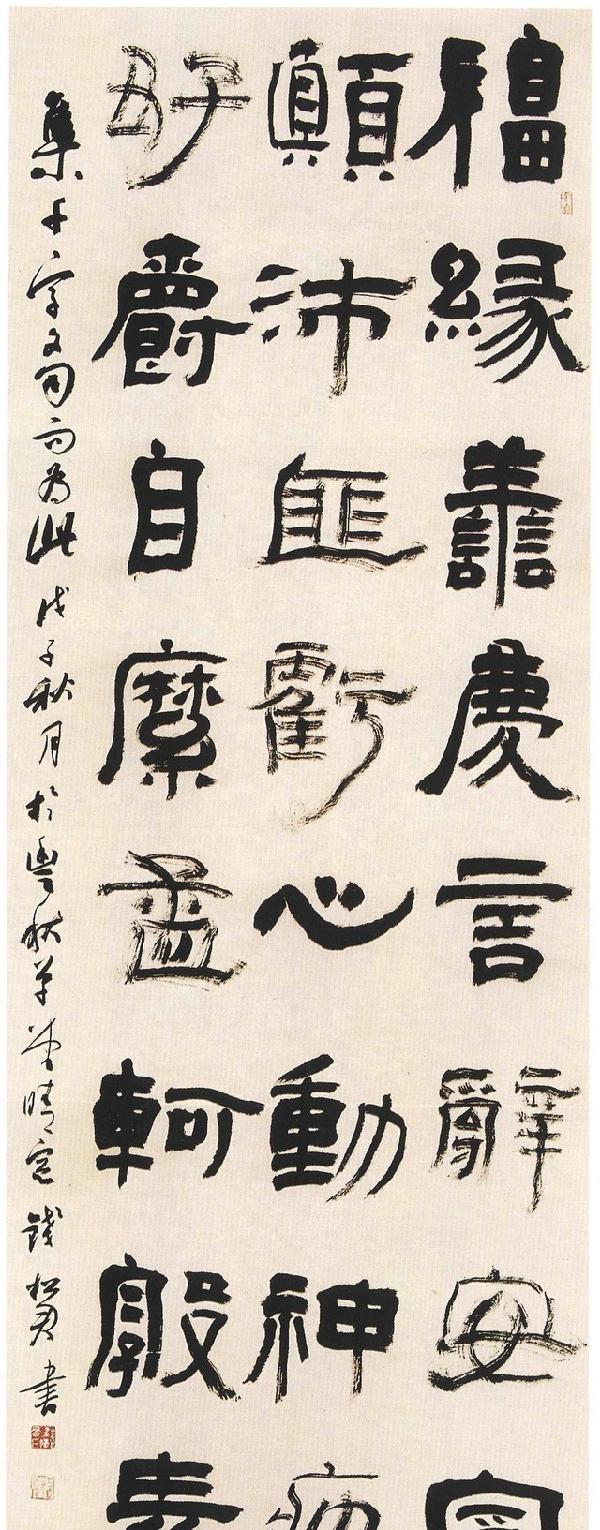 福緣譱慶言辭安定
顛沛匪虧心動神疲
好爵自縻孟軻敦素
集千字文句而為此戊子秋月於豐秋草堂晴窗錢松君書